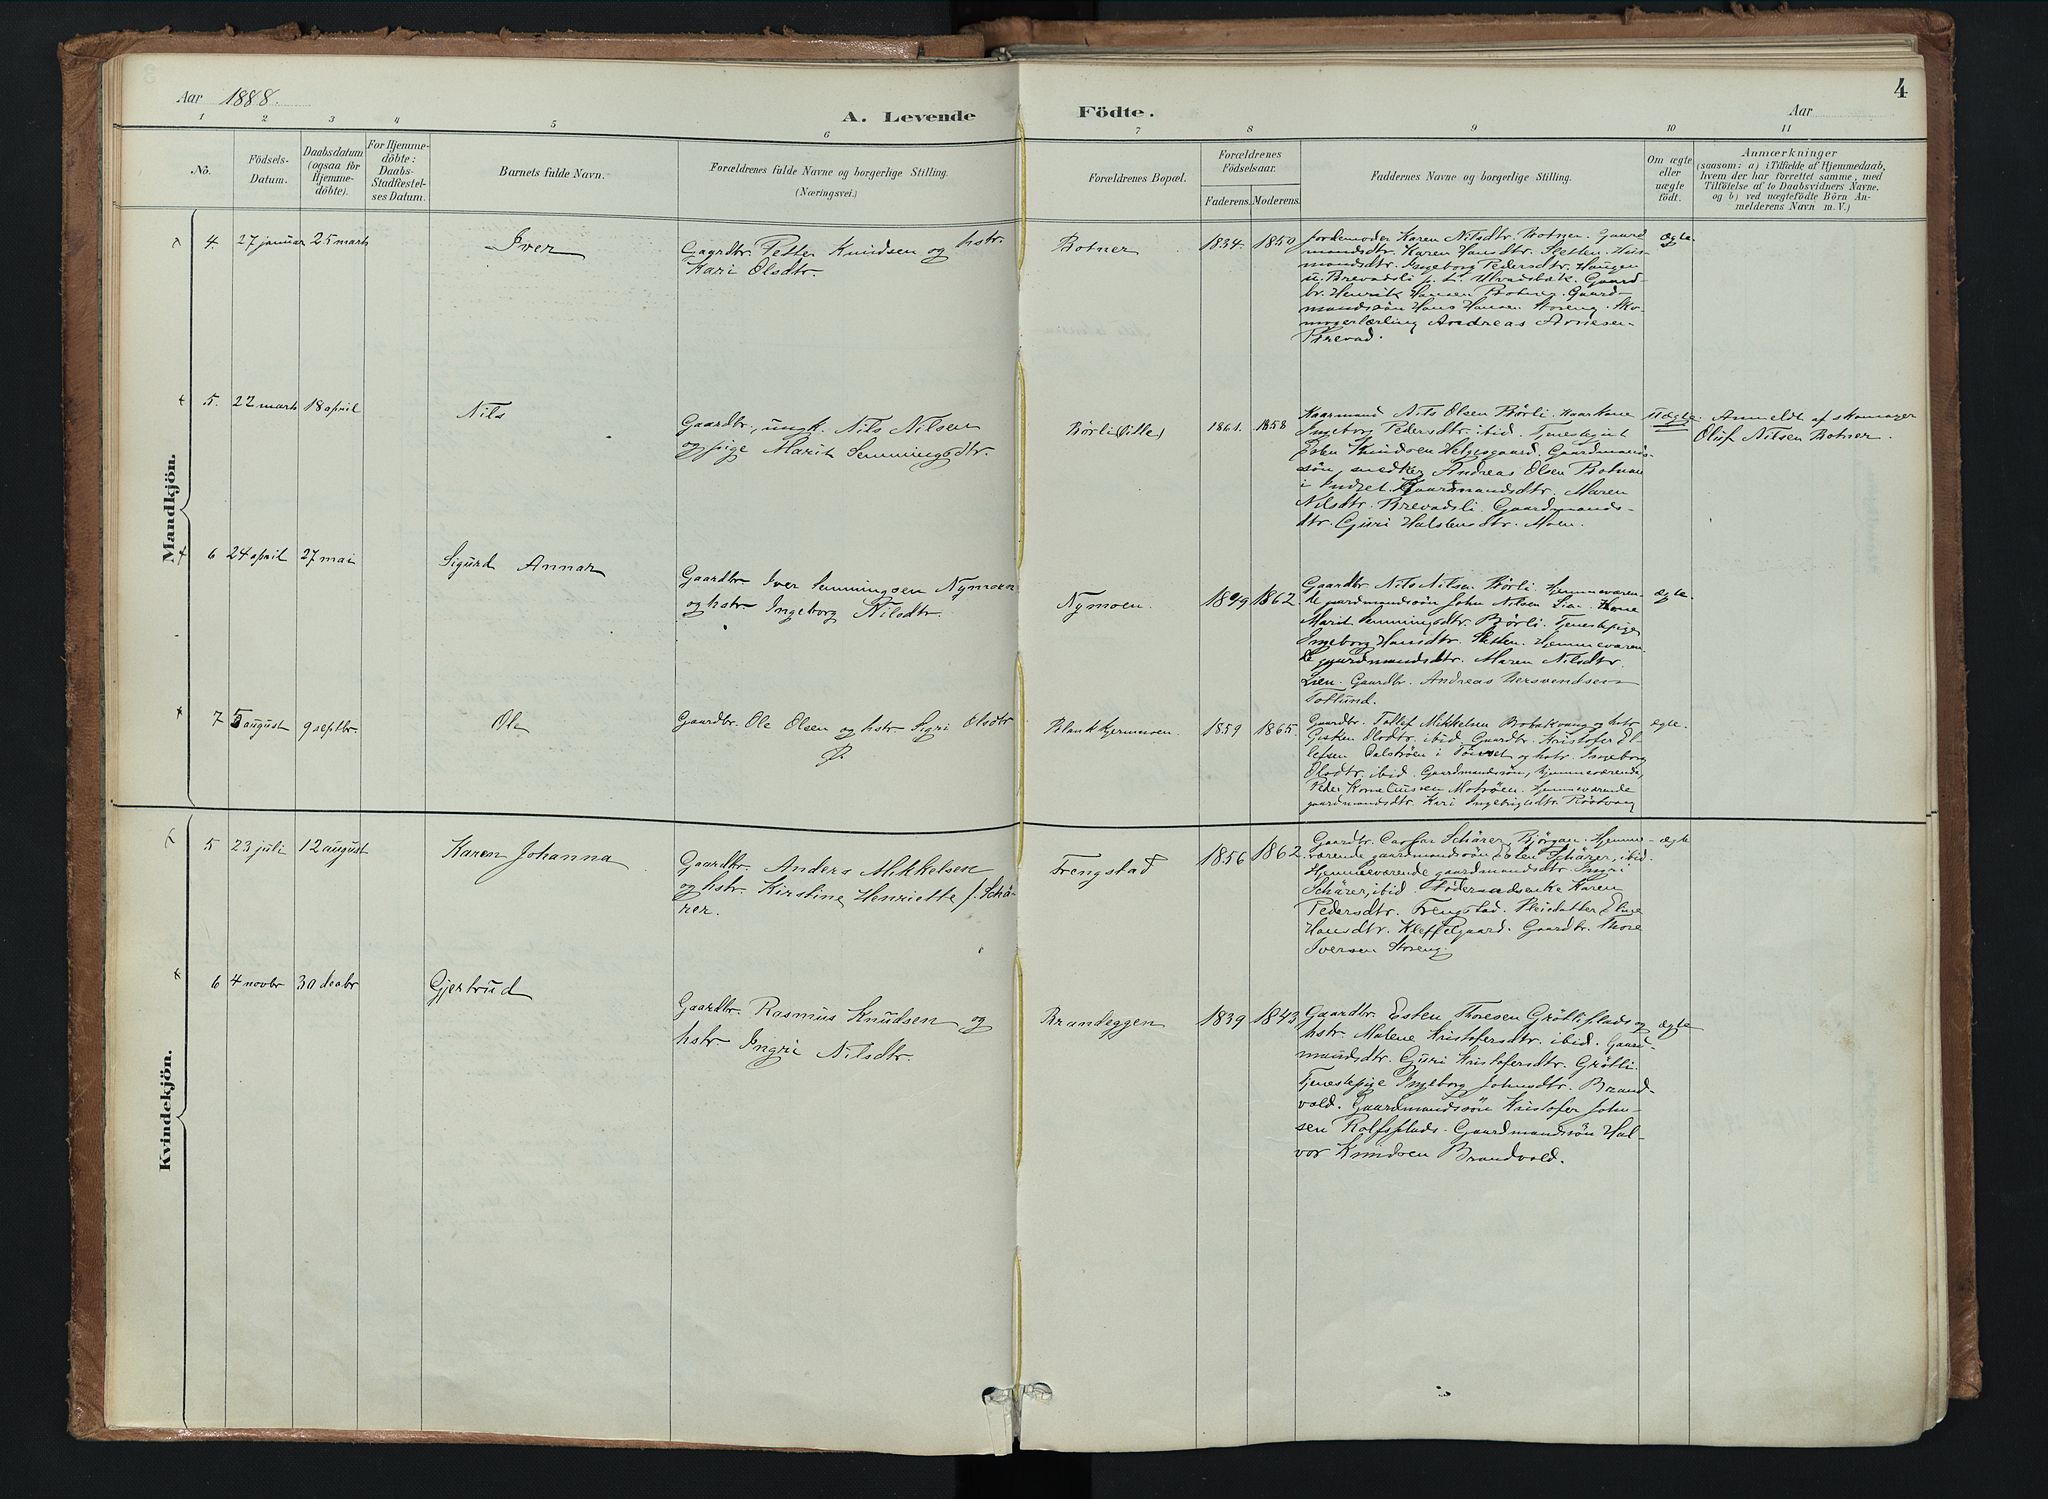 Aar 1888.
A. Levende Födte.
Aar
4
1 2 3 4 5 6 7 8 9 10 11
No.
Födsels-
Datum.
Daabsdatum
(ogsaa för
Hjemme-
döbte).
For Hjemme-
döbte:
Daabs-
Stadfæstel-
ses Datum.
Barnets fulde Navn.
Forældrenes fulde Navne og borgerlige Stilling.
(Næringsvei.)
Forældrenes Bopæl.
Forældrenes
Födselsaar.
Faderens. Moderens.
Faddernes Navne og borgerlige Stilling.
Om ægte
eller
uægte
födt.
Anmærkninger
(saasom: a) i Tilfælde af Hjemmedaab,
hvem der har forrettet samme, med
Tilföielse af to Daabsvidners Navne,
og b) ved uægtefödte Börn An-
melderens Navn m. V.)
Mandkjön.
4. 27 januar 25 marts
Iver
Gaardbr. Petter Knudsen og hstr.
Kari Olsdtr.
Botner
1834. 1850
Jordemoder Karen Nilsdtr. Botner. Gaard-
mandsdtr. Karen Hansdtr. Sletten. Hus-
mandsdtr. Ingeborg Pedersdtr. Haugen
u. Brevadsli p. t. Ulvaasbak. Gaard-
br. Henrik Hansen Botner. Gaard-
mandssön Hans Hansen Storeng. Sko-
magerlærling Andreas Arnesen
Brevad.
ægte.
5. 22 marts 18 april
Nils
Gaardbr., ungk. Nils Nilsen
og pige Marit Semmingsdtr.
Börli (lille)
1861. 1858
Kaarmand Nils Olsen Börli. Kaarkone
Ingeborg Pedersdtr. ibid. Tjenestegut
Esten Knudsen Helgesgaard. Gaardmands-
sön, snedker Andreas Olsen Botnan
i Indset. Gaardmandsdtr. Maren
Nilsdtr. Brevadsli. Gaardmands-
dtr. Guri Halstensdtr. Moen.
uægte.
Anmeldt af skomager
Oluf Nilsen Botner.
6 24 april 27 mai
Sigurd Annar
Gaardbr. Iver Semmingsen Nymoen
og hstr Ingeborg Nilsdtr.
Nymoen.
1862.
Gaardbr Nils Nilsen Börli. Hjemmeværen-
de gaardmandssön John Nilsen Lian. Kone
Marit Semmingsdtr. Börli. Tjenestepige
Ingeborg Hansdtr. Sletten. Hjemmeværen-
de gaardmandsdtr. Maren Nilsdtr.
Lien. Gaardbr. Andreas Mersvendsen
Toflund.
ægte.
7 5 august 9 septbr.
Ole
Gaardbr. Ole Olsen og hstr Sigri Olsdtr
Ø.
Blankkjernmoen.
1859 1865.
Gaardbr. Tollef Mikkelsen Brobakvang og hstr
Gusken Olsdtr. ibid. Gaardbr. Kristofer El-
lefsen Dalströen i Tönset og hstr. Ingeborg
Olsdtr. ibid. Gaardmandssön, hjemmeværende,
Peder Korneliussen Moströen. Hjemmeværende
gaardmandsdtr. Kari Ingebrigtsdtr. Röstvang
ægte.
Kvindekjön.
5 23 juli 12 august
Karen Johanna
Gaardbr. Anders Mikkelsen
og hstr. Kirstine Henriette f. Schä-
rer.
Frengstad
1856 1862
Gaardbr. Caspar Schärer, Björgan. Hjemme-
værende gaardmandssön Esten Schärer, ibid.
Hjemmeværende gaardmandsdtr. Ingri
Schärer, ibid. Föderaadsenke Karen
Pedersdtr. Frengstad. Pleiedatter Eline
Hansdtr. Kleffelgaard. Gaardbr. Thore
Iversen Storeng.
ægte
6 4 novbr 30 decbr
Gjertrud
Gaardbr. Rasmus Knudsen og
hstr. Ingri Nilsdtr.
Brandeggen
1839 1843
Gaardbr. Esten Thoresen Gröttisplads og
hstr. Malene Kristofersdtr. ibid. Gaard-
mandsdtr. Guri Kristofersdtr. Grötli.
Tjenestepige Ingeborg Johnsdtr. Brand-
vold. Gaardmandssön Kristofer John-
sen Rolfsplads. Gaardmandssön Hal-
vor Knudsen Brandvold.
ægte